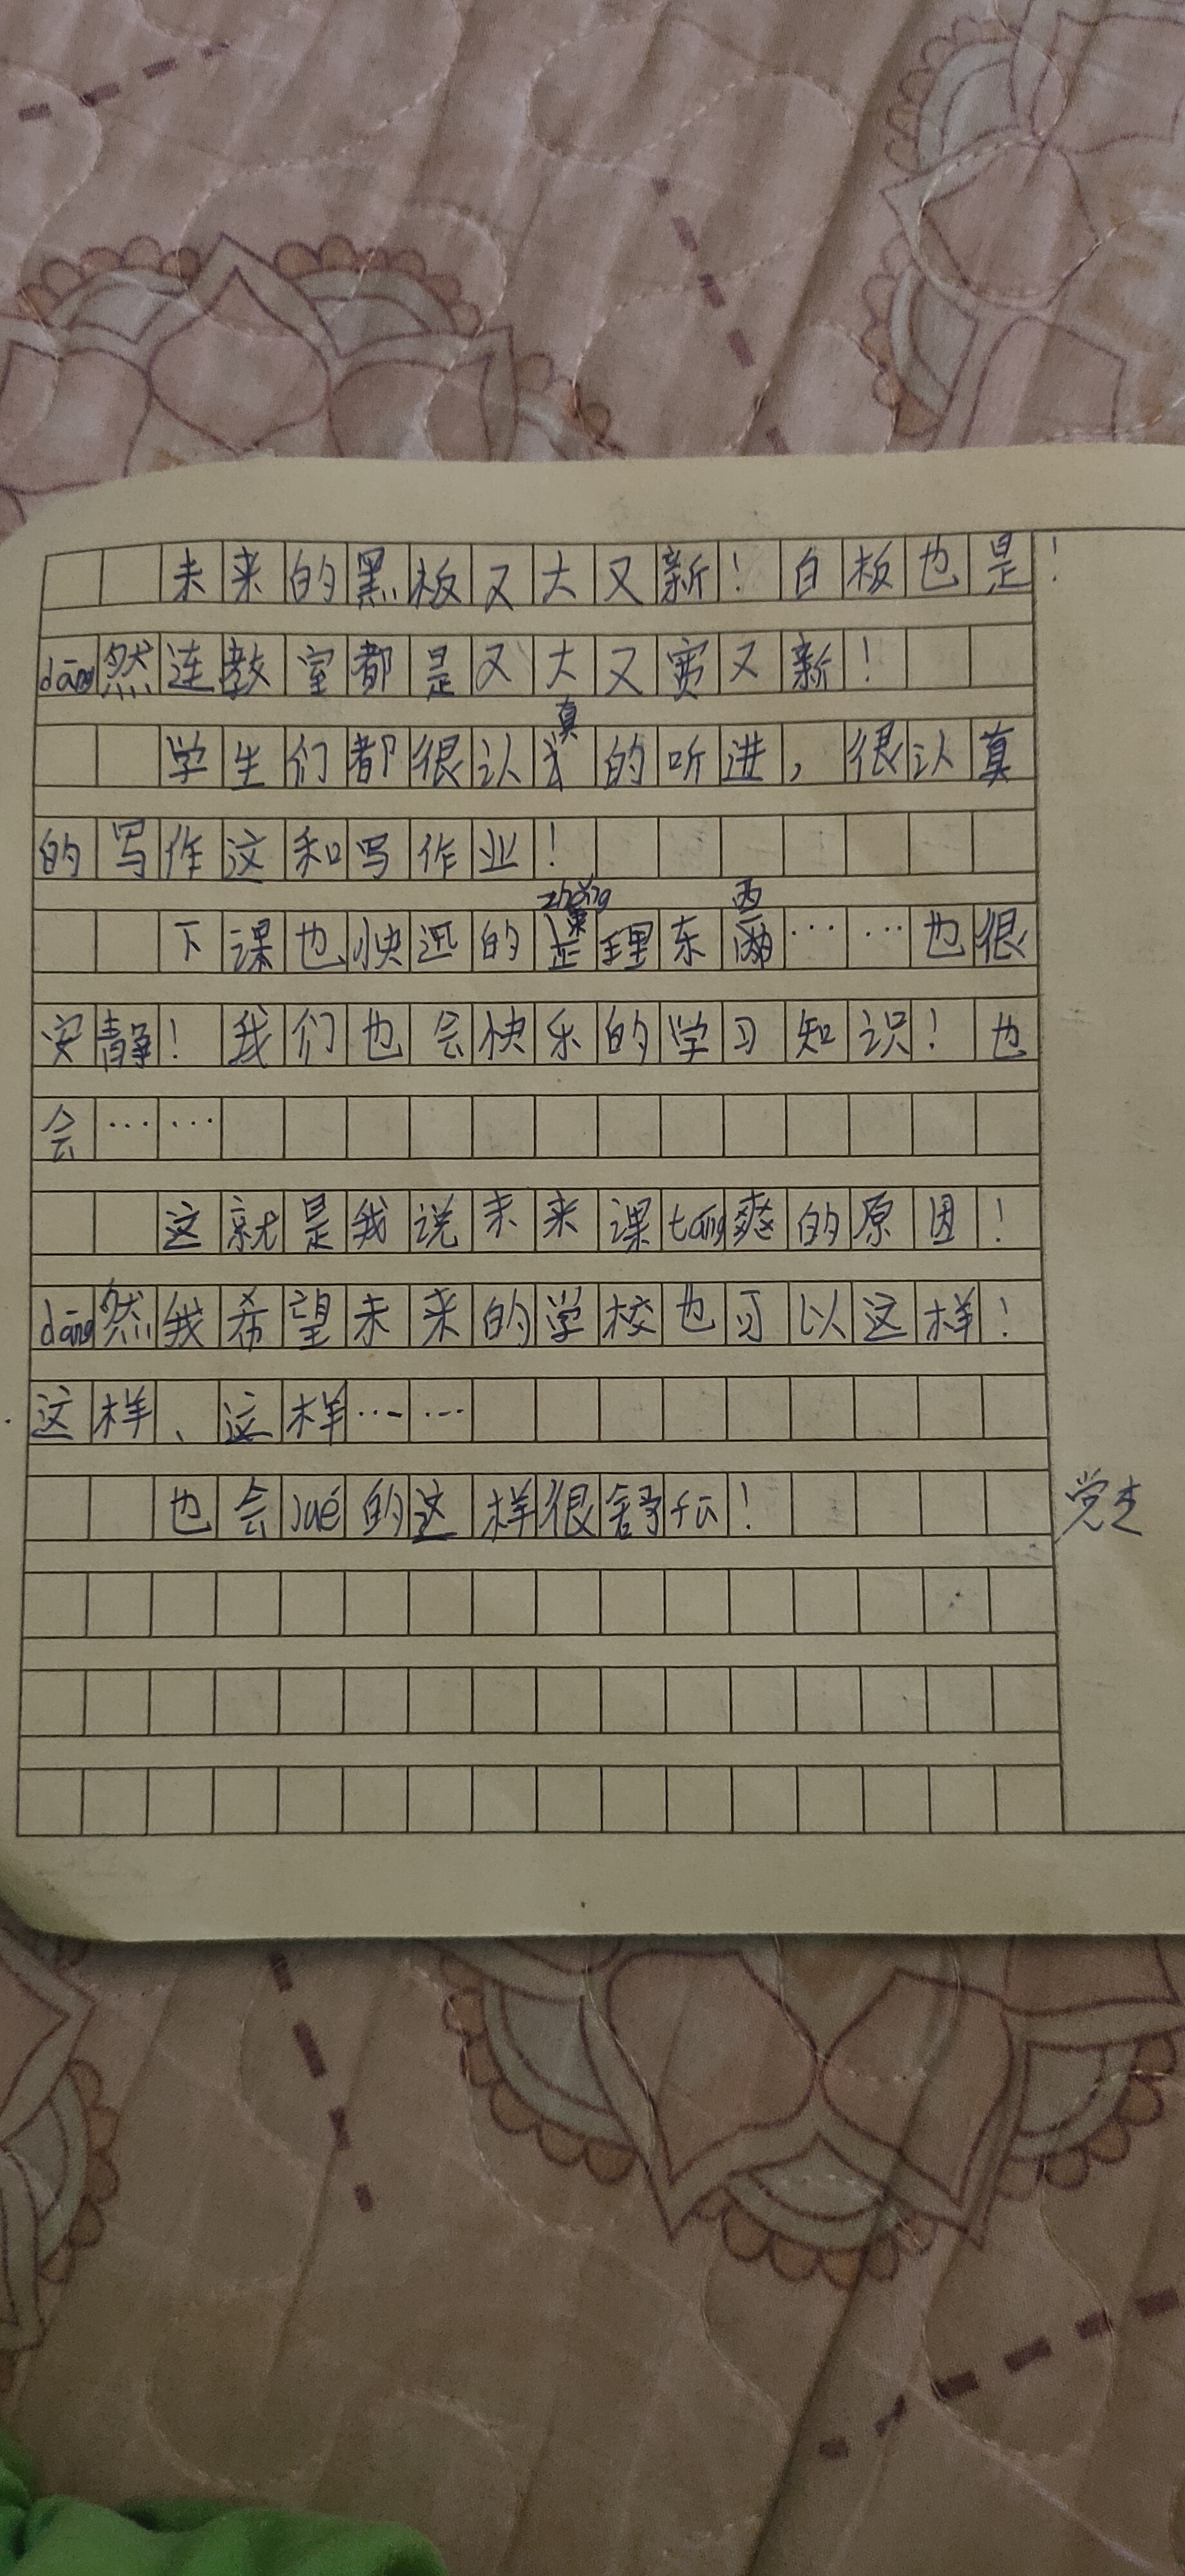 未来的黑板又大又新！白板也是！
dāng然连教室都是又大又宽又新！
真
学生们都很认的听进，很认真
的写作这和写作业！
zhěng 西
下课也快迅的整理东……也很
安静！我们也会快乐的学习知识！也
会……
这就是我说未来课táng爽的原因！
dāng然我希望未来的学校也可以这样！
这样、这样……
也会jué的这样很舒fú！